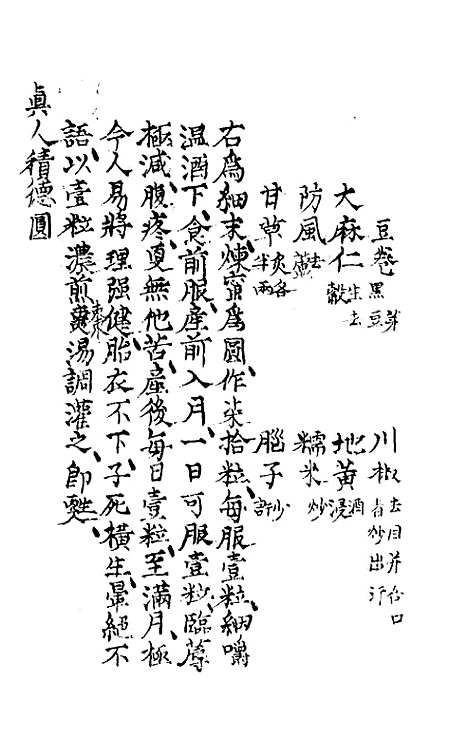 豆卷黑豆芽 川椒去目并合口者炒出汗
大麻仁生去殼 地黃酒浸
防風去蘆 糯米炒
甘草炙各半兩 腦子少許
右爲細末煉蜜爲圓作柒拾粒每服壹粒細嚼
温酒下食前服産前入月一日可服壹粒臨蓐
極減腹疼更無他苦産後每日壹粒至滿月極
令人易將理强健胎衣不下子死横生暈絕不
語以壹粒濃煎棗湯調灌之即甦
眞人積德圓